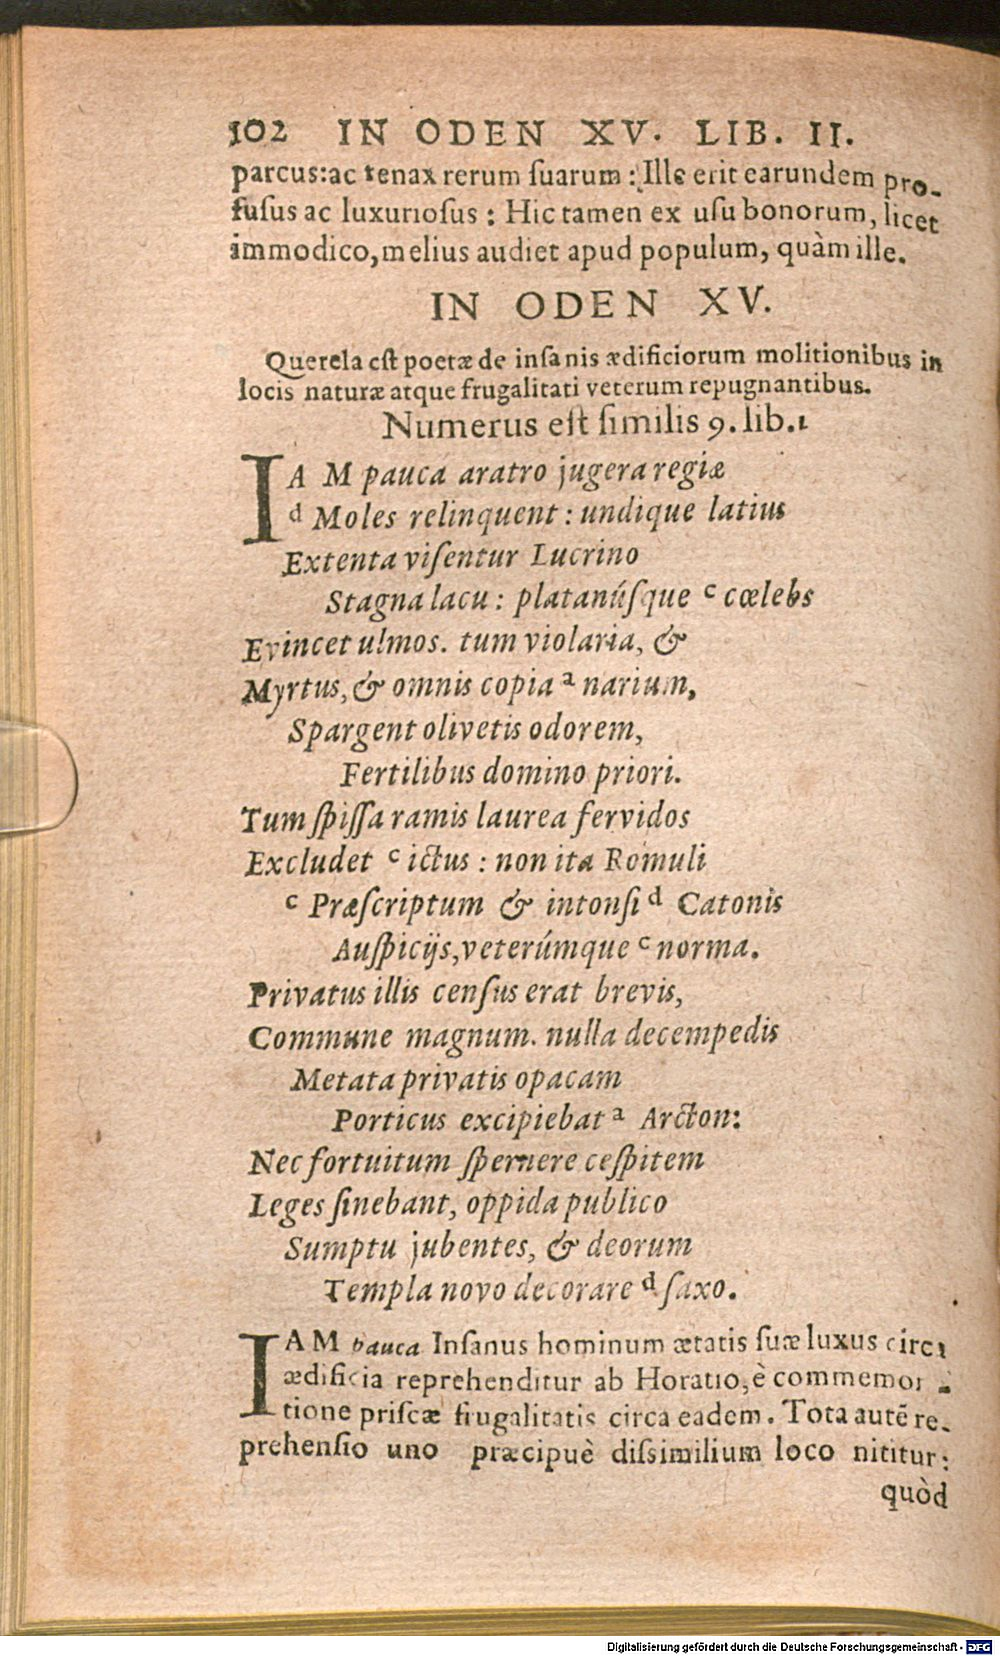 102 IN ODEN XV. LIB. II.
parcus: ac tenax rerum ſuarum: Ille erit earundem pro-
fuſus ac luxurioſus: Hic tamen ex uſu bonorum, licet
immodico, melius audiet apud populum, quàm ille.
IN ODEN XV.
Querela eſt poetæ de inſanis ædificiorum molitionibus in
locis naturæ atque frugalitati veterum repugnantibus.
Numerus eſt ſimilis 9. lib. 1
IAM pauca aratro jugera regiæ
d Moles relinquent: undique latius
Extenta viſentur Lucrino
Stagna lacu: platanúſque c cœlebs
Evincet ulmos. tum violaria, &
Myrtus, & omnis copia a narium,
Spargent olivetis odorem,
Fertilibus domino priori.
Tum ſpiſſa ramis laurea fervidos
Excludet c ictus: non ita Romuli
c Præſcriptum & intonſi d Catonis
Auſpicijs, veterúmque c norma.
Privatus illis cenſus erat brevis,
Commune magnum. nulla decempedis
Metata privatis opacam
Porticus excipiebat a Arcton:
Nec fortuitum ſpernere ceſpitem
Leges ſinebant, oppida publico
Sumptu jubentes, & deorum
Templa novo decorare d ſaxo.
IAM pauca Inſanus hominum ætatis ſuæ luxus circa
ædificia reprehenditur ab Horatio, è commemora-
tione priſcæ frugalitatis circa eadem. Tota autẽ re-
prehenſio uno præcipuè diſſimilium loco nititur:
quòd
Digitalisierung gefördert durch die Deutsche Forschungsgemeinschaft - DFG